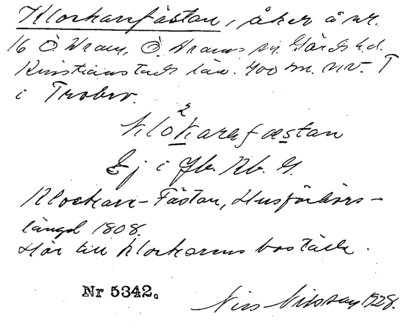 Klockarefästan, åker å nr.
16 Ö. Vram, Ö. Vrams sn. Gärds hd.
Kristianstads län. 400 m. NV. T
i Trobro.
klåkarefæstan
Ej i Jb. Rb. G.
Klockare-Fästan, Husförhörs-
längd 1808.
Hör till klockarens boställe.
Nr 5342.
Nils Nilsson 1928.